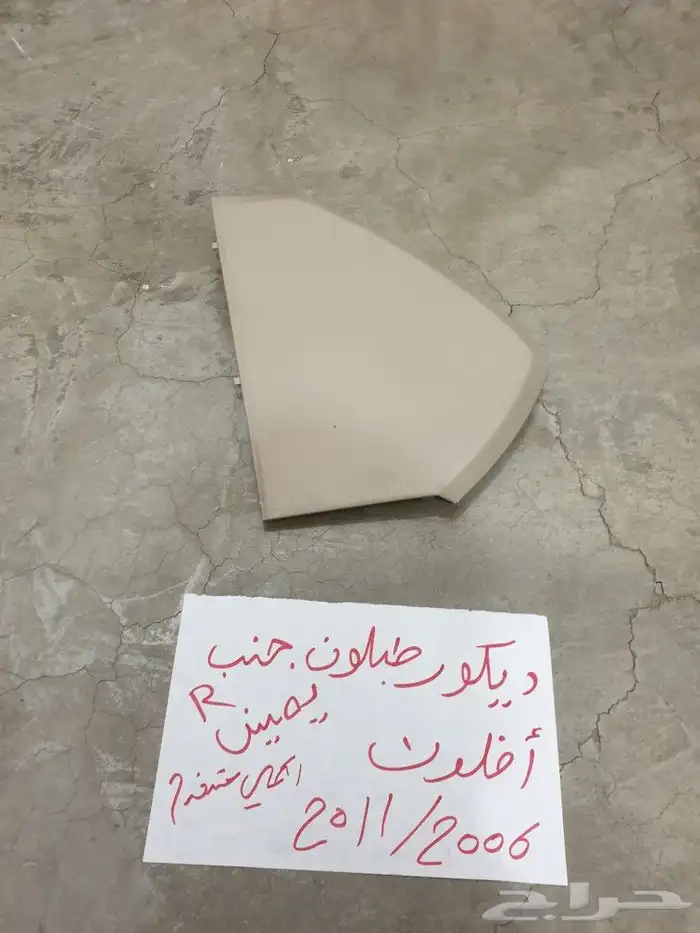 ديكور طبلون جنب
يمين R
أفلون
اصلي مستخدم
2011/2006
حراج